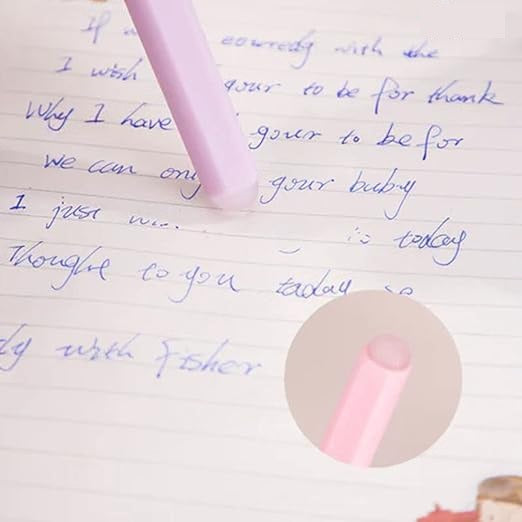 If with the
I wish gour to be for thank
Why I have gour to be for
we can ony gour buby
I just is today
Thoughe to you taday so
dy with fisher